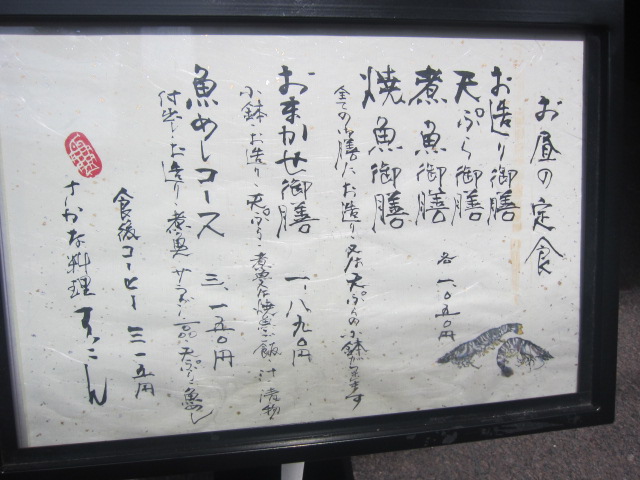 お昼の定食
お造り御膳
天ぷら御膳
煮魚御膳
焼魚御膳
各 一、〇五〇円
全ての御膳にお造り、又は天ぷらの小鉢が付きます
おまかせ御膳 一、八九〇円
小鉢・お造り・天ぷら・煮魚又は焼魚・ご飯 汁 漬物
魚めしコース 三、一五〇円
付出し・お造り・煮魚 サラダ・一品・天ぷら・魚めし
食後コーヒー 三一五円
さかな料理